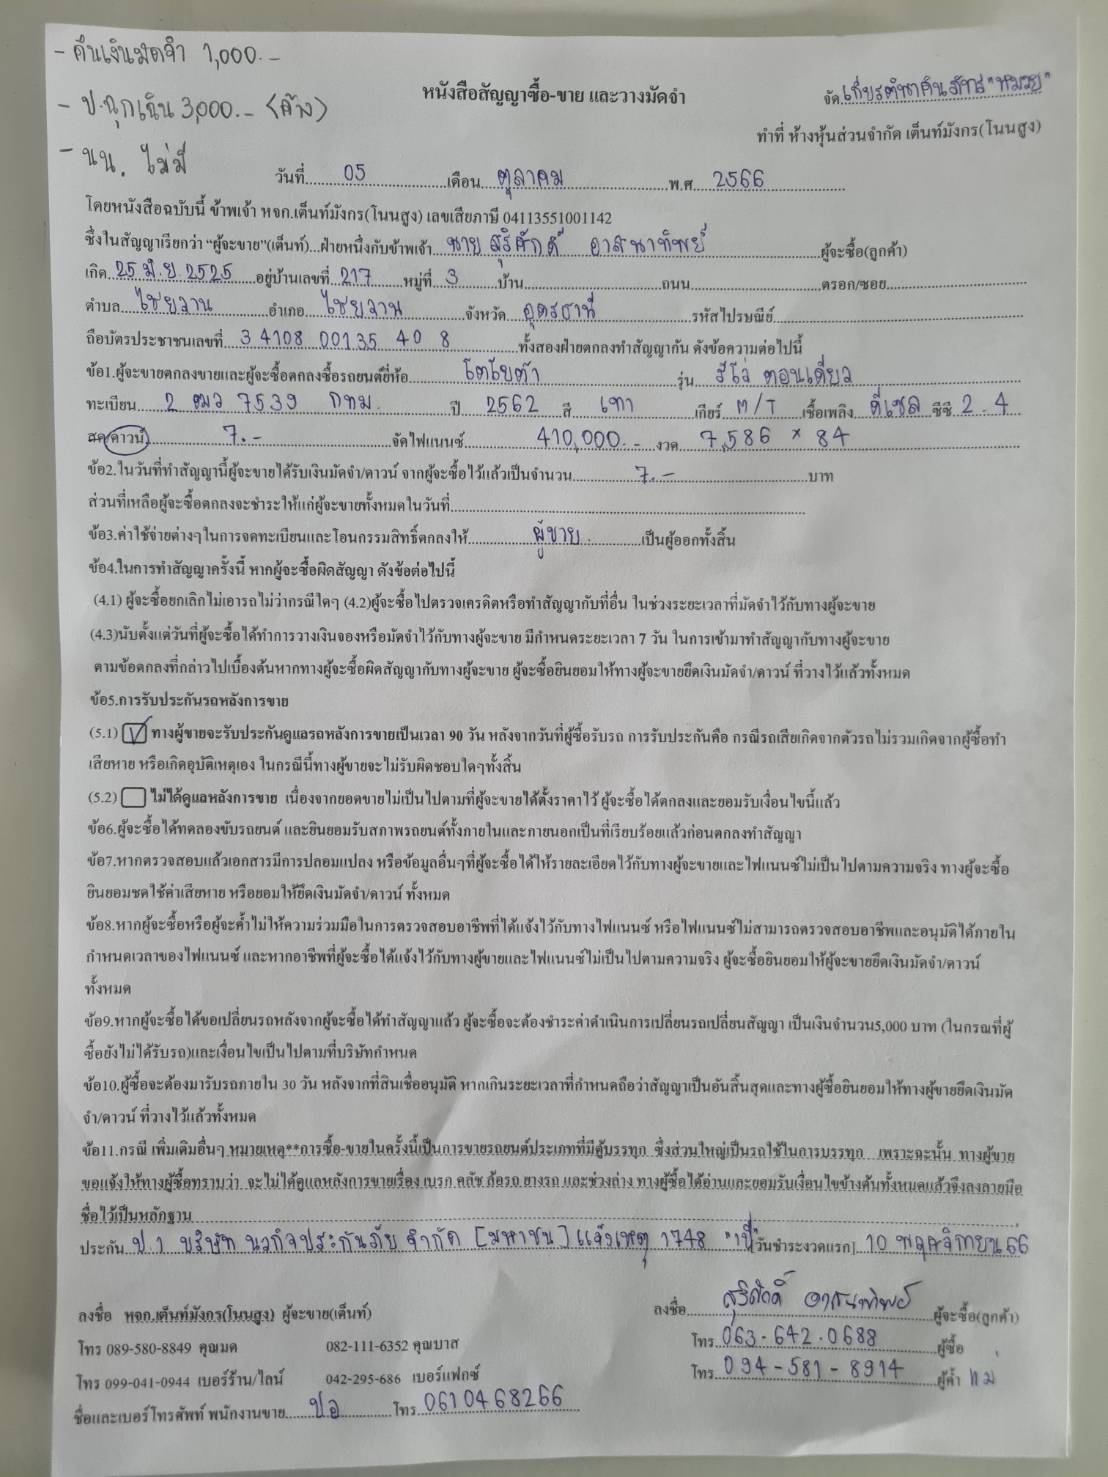 - คืนเงินมัดจำ 1,000.-
- ป.ฉุกเฉิน 3,000.- (ค้าง)
- นน. ไม่มี
หนังสือสัญญาซื้อ-ขาย และวางมัดจำ
จัด เกียรตินาคินภัทร "หมวย"
ทำที่ ห้างหุ้นส่วนจำกัด เต็นท์มังกร(โนนสูง)
วันที่ 05 เดือน ตุลาคม พ.ศ 2566
โดยหนังสือฉบับนี้ ข้าพเจ้า หจก.เต็นท์มังกร(โนนสูง) เลขเสียภาษี 04113551001142
ซึ่งในสัญญาเรียกว่า "ผู้จะขาย"(เต็นท์)...ฝ่ายหนึ่งกับข้าพเจ้า นาย สุริศักดิ์ อาสนาทิพย์ ผู้จะซื้อ(ลูกค้า)
เกิด 25 มิ.ย 2525 อยู่บ้านเลขที่ 217 หมู่ที่ 3 บ้าน ถนน ตรอก/ซอย
ตำบล ไชยวาน อำเภอ ไชยวาน จังหวัด อุดรธานี รหัสไปรษณีย์
ถือบัตรประชาชนเลขที่ 3 4108 00135 40 8 ทั้งสองฝ่ายตกลงทำสัญญากัน ดังข้อความต่อไปนี้
ข้อ1.ผู้จะขายตกลงขายและผู้จะซื้อตกลงซื้อรถยนต์ยี่ห้อ โตโยต้า รุ่น รีโว่ ตอนเดี่ยว
ทะเบียน 2 ฒว 7539 กทม. ปี 2562 สี เทา เกียร์ M/T เชื้อเพลิง ดีเซล ซีซี 2.4
สด/ดาวน์ 7.- จัดไฟแนนซ์ 410,000.- งวด 7,586 × 84
ข้อ2.ในวันที่ทำสัญญานี้ผู้จะขายได้รับเงินมัดจำ/ดาวน์ จากผู้จะซื้อไว้แล้วเป็นจำนวน 7.- บาท
ส่วนที่เหลือผู้จะซื้อตกลงจะชำระให้แก่ผู้จะขายทั้งหมดในวันที่
ข้อ3.ค่าใช้จ่ายต่างๆในการจดทะเบียนและโอนกรรมสิทธิ์ตกลงให้ ผู้ขาย เป็นผู้ออกทั้งสิ้น
ข้อ4.ในการทำสัญญาครั้งนี้ หากผู้จะซื้อผิดสัญญา ดังข้อต่อไปนี้
(4.1) ผู้จะซื้อยกเลิกไม่เอารถไม่ว่ากรณีใดๆ (4.2)ผู้จะซื้อไปตรวจเครดิตหรือทำสัญญากับที่อื่น ในช่วงระยะเวลาที่มัดจำไว้กับทางผู้จะขาย
(4.3)นับตั้งแต่วันที่ผู้จะซื้อได้ทำการวางเงินจองหรือมัดจำไว้กับทางผู้จะขาย มีกำหนดระยะเวลา 7 วัน ในการเข้ามาทำสัญญากับทางผู้จะขาย
ตามข้อตกลงที่กล่าวไปเบื้องต้นหากทางผู้จะซื้อผิดสัญญากับทางผู้จะขาย ผู้จะซื้อยินยอมให้ทางผู้จะขายยึดเงินมัดจำ/ดาวน์ ที่วางไว้แล้วทั้งหมด
ข้อ5.การรับประกันรถหลังการขาย
(5.1) ทางผู้ขายจะรับประกันดูแลรถหลังการขายเป็นเวลา 90 วัน หลังจากวันที่ผู้ซื้อรับรถ การรับประกันคือ กรณีรถเสียเกิดจากตัวรถไม่รวมเกิดจากผู้ซื้อทำ
เสียหาย หรือเกิดอุบัติเหตุเอง ในกรณีนี้ทางผู้ขายจะไม่รับผิดชอบใดๆทั้งสิ้น
(5.2) ไม่ได้ดูแลหลังการขาย เนื่องจากยอดขายไม่เป็นไปตามที่ผู้จะขายได้ตั้งราคาไว้ ผู้จะซื้อได้ตกลงและยอมรับเงื่อนไขนี้แล้ว
ข้อ6.ผู้จะซื้อได้ทดลองขับรถยนต์ และยินยอมรับสภาพรถยนต์ทั้งภายในและภายนอกเป็นที่เรียบร้อยแล้วก่อนตกลงทำสัญญา
ข้อ7.หากตรวจสอบแล้วเอกสารมีการปลอมแปลง หรือข้อมูลอื่นๆที่ผู้จะซื้อได้ให้รายละเอียดไว้กับทางผู้จะขายและไฟแนนซ์ไม่เป็นไปตามความจริง ทางผู้จะซื้อ
ยินยอมชดใช้ค่าเสียหาย หรือยอมให้ยึดเงินมัดจำ/ดาวน์ ทั้งหมด
ข้อ8.หากผู้จะซื้อหรือผู้จะค้ำไม่ให้ความร่วมมือในการตรวจสอบอาชีพที่ได้แจ้งไว้กับทางไฟแนนซ์ หรือไฟแนนซ์ไม่สามารถตรวจสอบอาชีพและอนุมัติได้ภายใน
กำหนดเวลาของไฟแนนซ์ และหากอาชีพที่ผู้จะซื้อได้แจ้งไว้กับทางผู้ขายและไฟแนนซ์ไม่เป็นไปตามความจริง ผู้จะซื้อยินยอมให้ผู้จะขายยึดเงินมัดจำ/ดาวน์
ทั้งหมด
ข้อ9.หากผู้จะซื้อได้ขอเปลี่ยนรถหลังจากผู้จะซื้อได้ทำสัญญาแล้ว ผู้จะซื้อจะต้องชำระค่าดำเนินการเปลี่ยนรถเปลี่ยนสัญญา เป็นเงินจำนวน5,000 บาท (ในกรณที่ผู้
ซื้อยังไม่ได้รับรถ)และเงื่อนไขเป็นไปตามที่บริษัทกำหนด
ข้อ10.ผู้ซื้อจะต้องมารับรถภายใน 30 วัน หลังจากที่สินเชื่ออนุมัติ หากเกินระยะเวลาที่กำหนดถือว่าสัญญาเป็นอันสิ้นสุดและทางผู้ซื้อยินยอมให้ทางผู้ขายยึดเงินมัด
จำ/ดาวน์ ที่วางไว้แล้วทั้งหมด
ข้อ11.กรณี เพิ่มเติมอื่นๆ หมายเหตุ**การซื้อ-ขายในครั้งนี้เป็นการขายรถยนต์ประเภทที่มีตู้บรรทุก ซึ่งส่วนใหญ่เป็นรถใช้ในการบรรทุก เพราะฉะนั้น ทางผู้ขาย
ขอแจ้งให้ทางผู้ซื้อทราบว่า จะไม่ได้ดูแลหลังการขายเรื่อง เบรก คลัช ล้อรถ ยางรถ และช่วงล่าง ทางผู้ซื้อได้อ่านและยอมรับเงื่อนไขข้างต้นทั้งหมดแล้วจึงลงลายมือ
ชื่อไว้เป็นหลักฐาน
ประกัน ป.1 บริษัท นวกิจประกันภัย จำกัด [มหาชน] แจ้งเหตุ 1748 วันชำระงวดแรก 10 พฤศจิกายน 66
ลงชื่อ หจก.เต็นท์มังกร(โนนสูง) ผู้จะขาย(เต็นท์)
ลงชื่อ สุริศักดิ์ อาสนาทิพย์ ผู้จะซื้อ(ลูกค้า)
โทร 089-580-8849 คุณมด 082-111-6352 คุณบาส
โทร 063-642-0688 ผู้ซื้อ
โทร 099-041-0944 เบอร์ร้าน/ไลน์ 042-295-686 เบอร์แฟกซ์
โทร 094-581-8914 ผู้ค้ำ แม่
ชื่อและเบอร์โทรศัพท์ พนักงานขาย ปอ โทร 0610468266